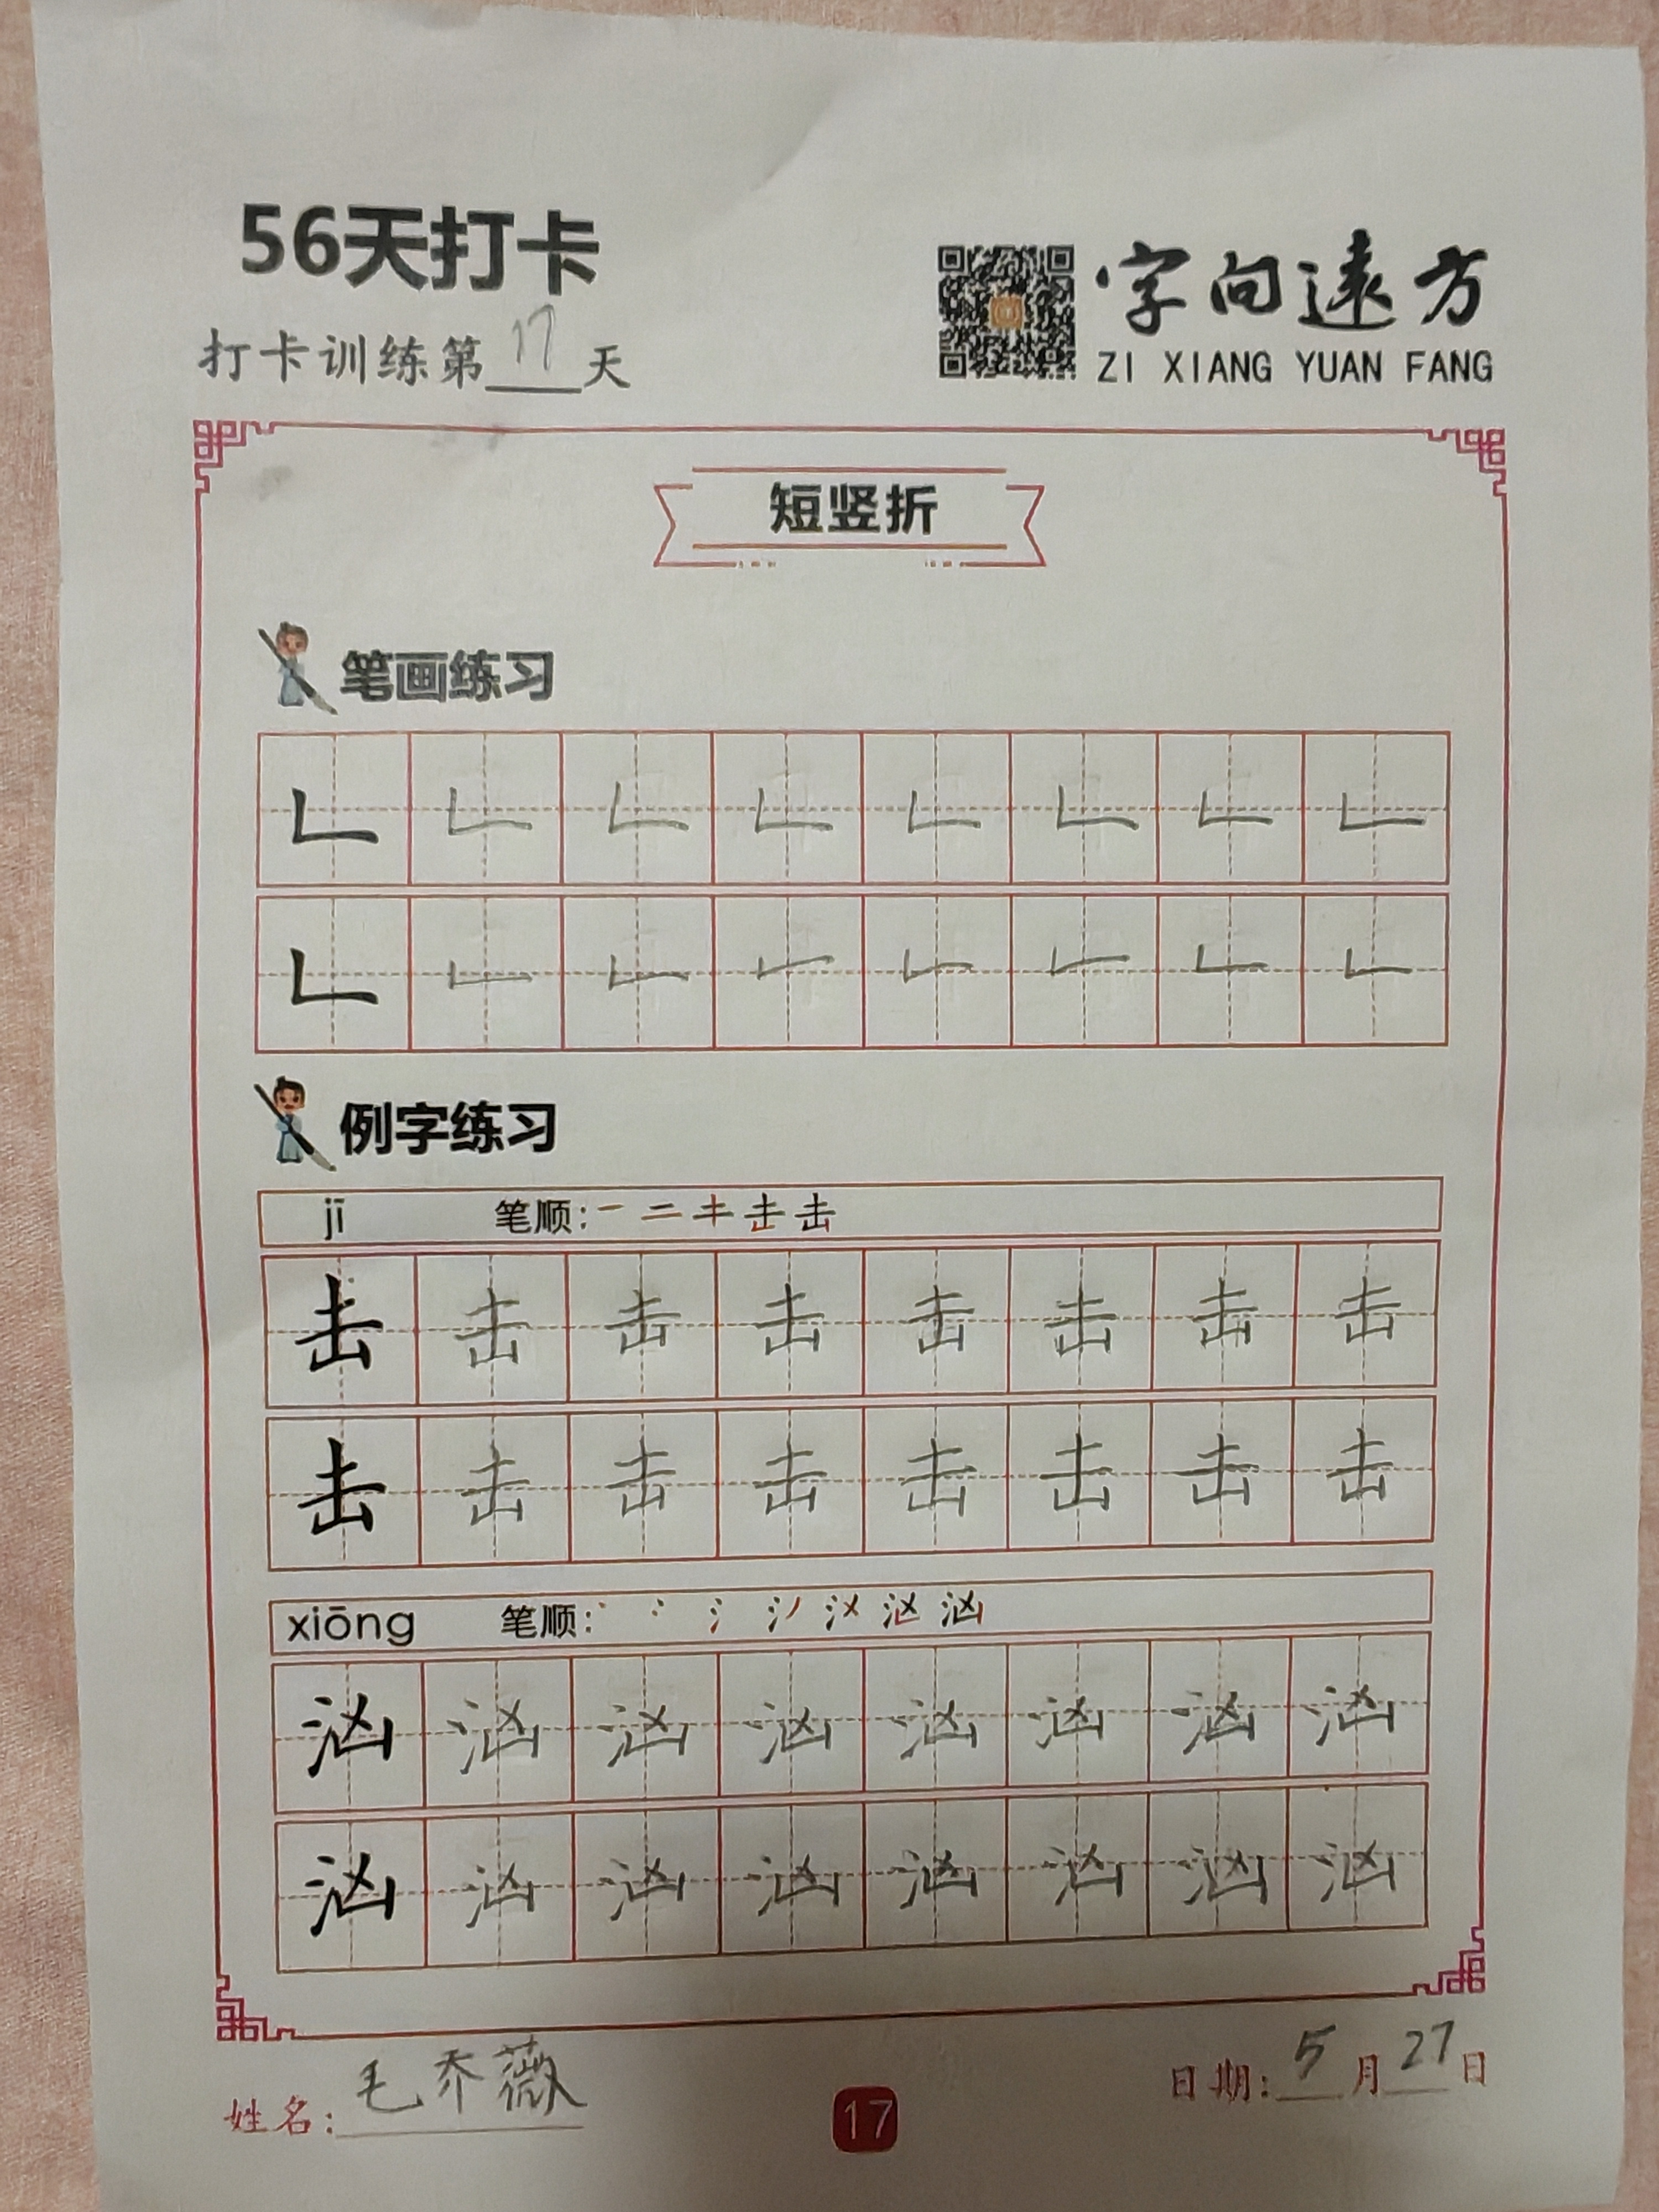 56天打卡
打卡训练第17天
字向遠方
ZI XIANG YUAN FANG
短竖折
笔画练习
𠃊 𠃊 𠃊 𠃊 𠃊 𠃊 𠃊 𠃊
𠃊 𠃊 𠃊 𠃊 𠃊 𠃊 𠃊 𠃊
例字练习
jī 笔顺: 一 二 キ 击 击
击 击 击 击 击 击 击 击
击 击 击 击 击 击 击 击
xiōng 笔顺: 汹
汹 汹 汹 汹 汹 汹 汹 汹
汹 汹 汹 汹 汹 汹 汹 汹
姓名: 毛乔薇
17
日期: 5月27日